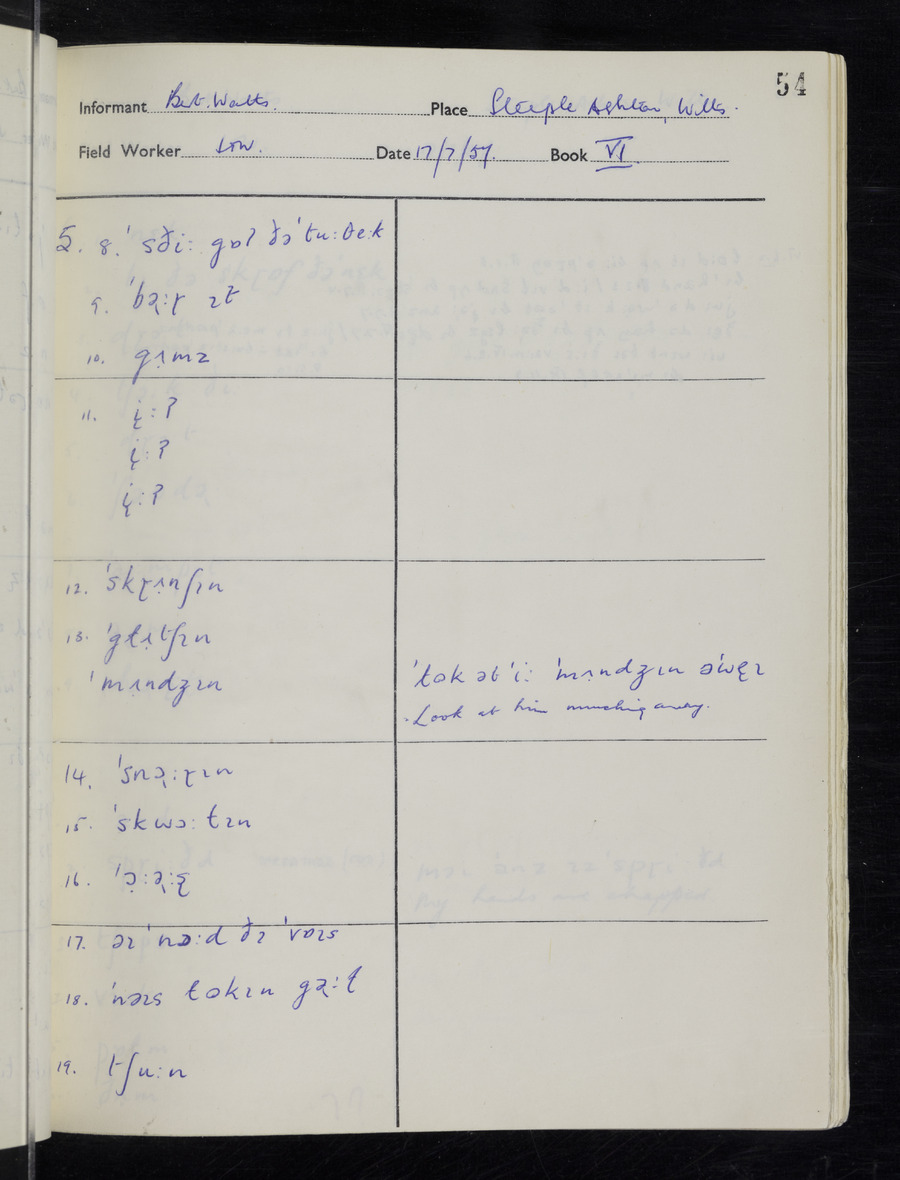 54
Informant Bert. Watts. Place Steeple Ashton, Wilts.
Field Worker Date 17/7/57. Book VI
5. 8. ˈsðiː gɒʔ ðəˈtuːθeːk
9. ˈbə̢ːɽ ɪt
10. gɪ̣mz
11. i̢ː?
i̢ː?
i̢ː?
12. ˈskɽɪ̣nʃɪn
13. ˈgɫɪ̣tʃɪn
ˈmɪ̣ndʒɪn ˈɫək ətˈiː ˈmɪ̣ndʒɪn əˈwɛ̢ɪ
Look at him munching away.
14. ˈsnə̢ːɽɪn
15. ˈskwɔːɫɪn
16.
17. əɪ ˈnɔːd ðɪ ˈvɒɪs
18. ˈnəɪs ɫəkɪn gə̢ːɫ
19. tʃuːn